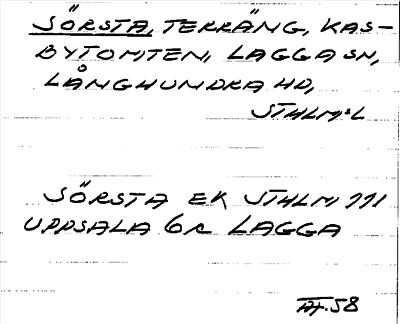 SÖRSTA, TERRÄNG, KAS-
BYTOMTEN, LAGGA SN,
LÅNGHUNDRA HD,
STHLMS L
SÖRSTA EK STHLM 991
UPPSALA 6c LAGGA
58